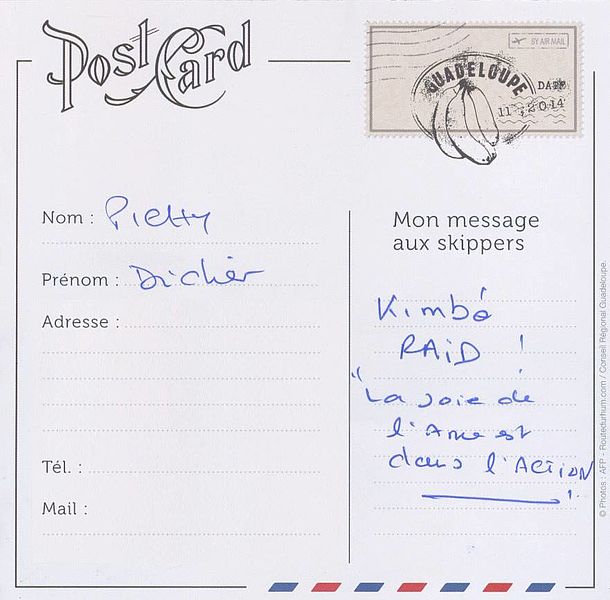 Post Card
BY AIR MAIL
GUADELOUPE
DATE
11, 2014
Nom : Pietty
Prénom : Didier
Adresse :
Tél. :
Mail :
Mon message
aux skippers
Kimbé
RAiD !
"La joie de
l'Ame est
dans l'ACTION
!
© Photos : AFP - Routedurhum.com / Conseil Régional Guadeloupe.